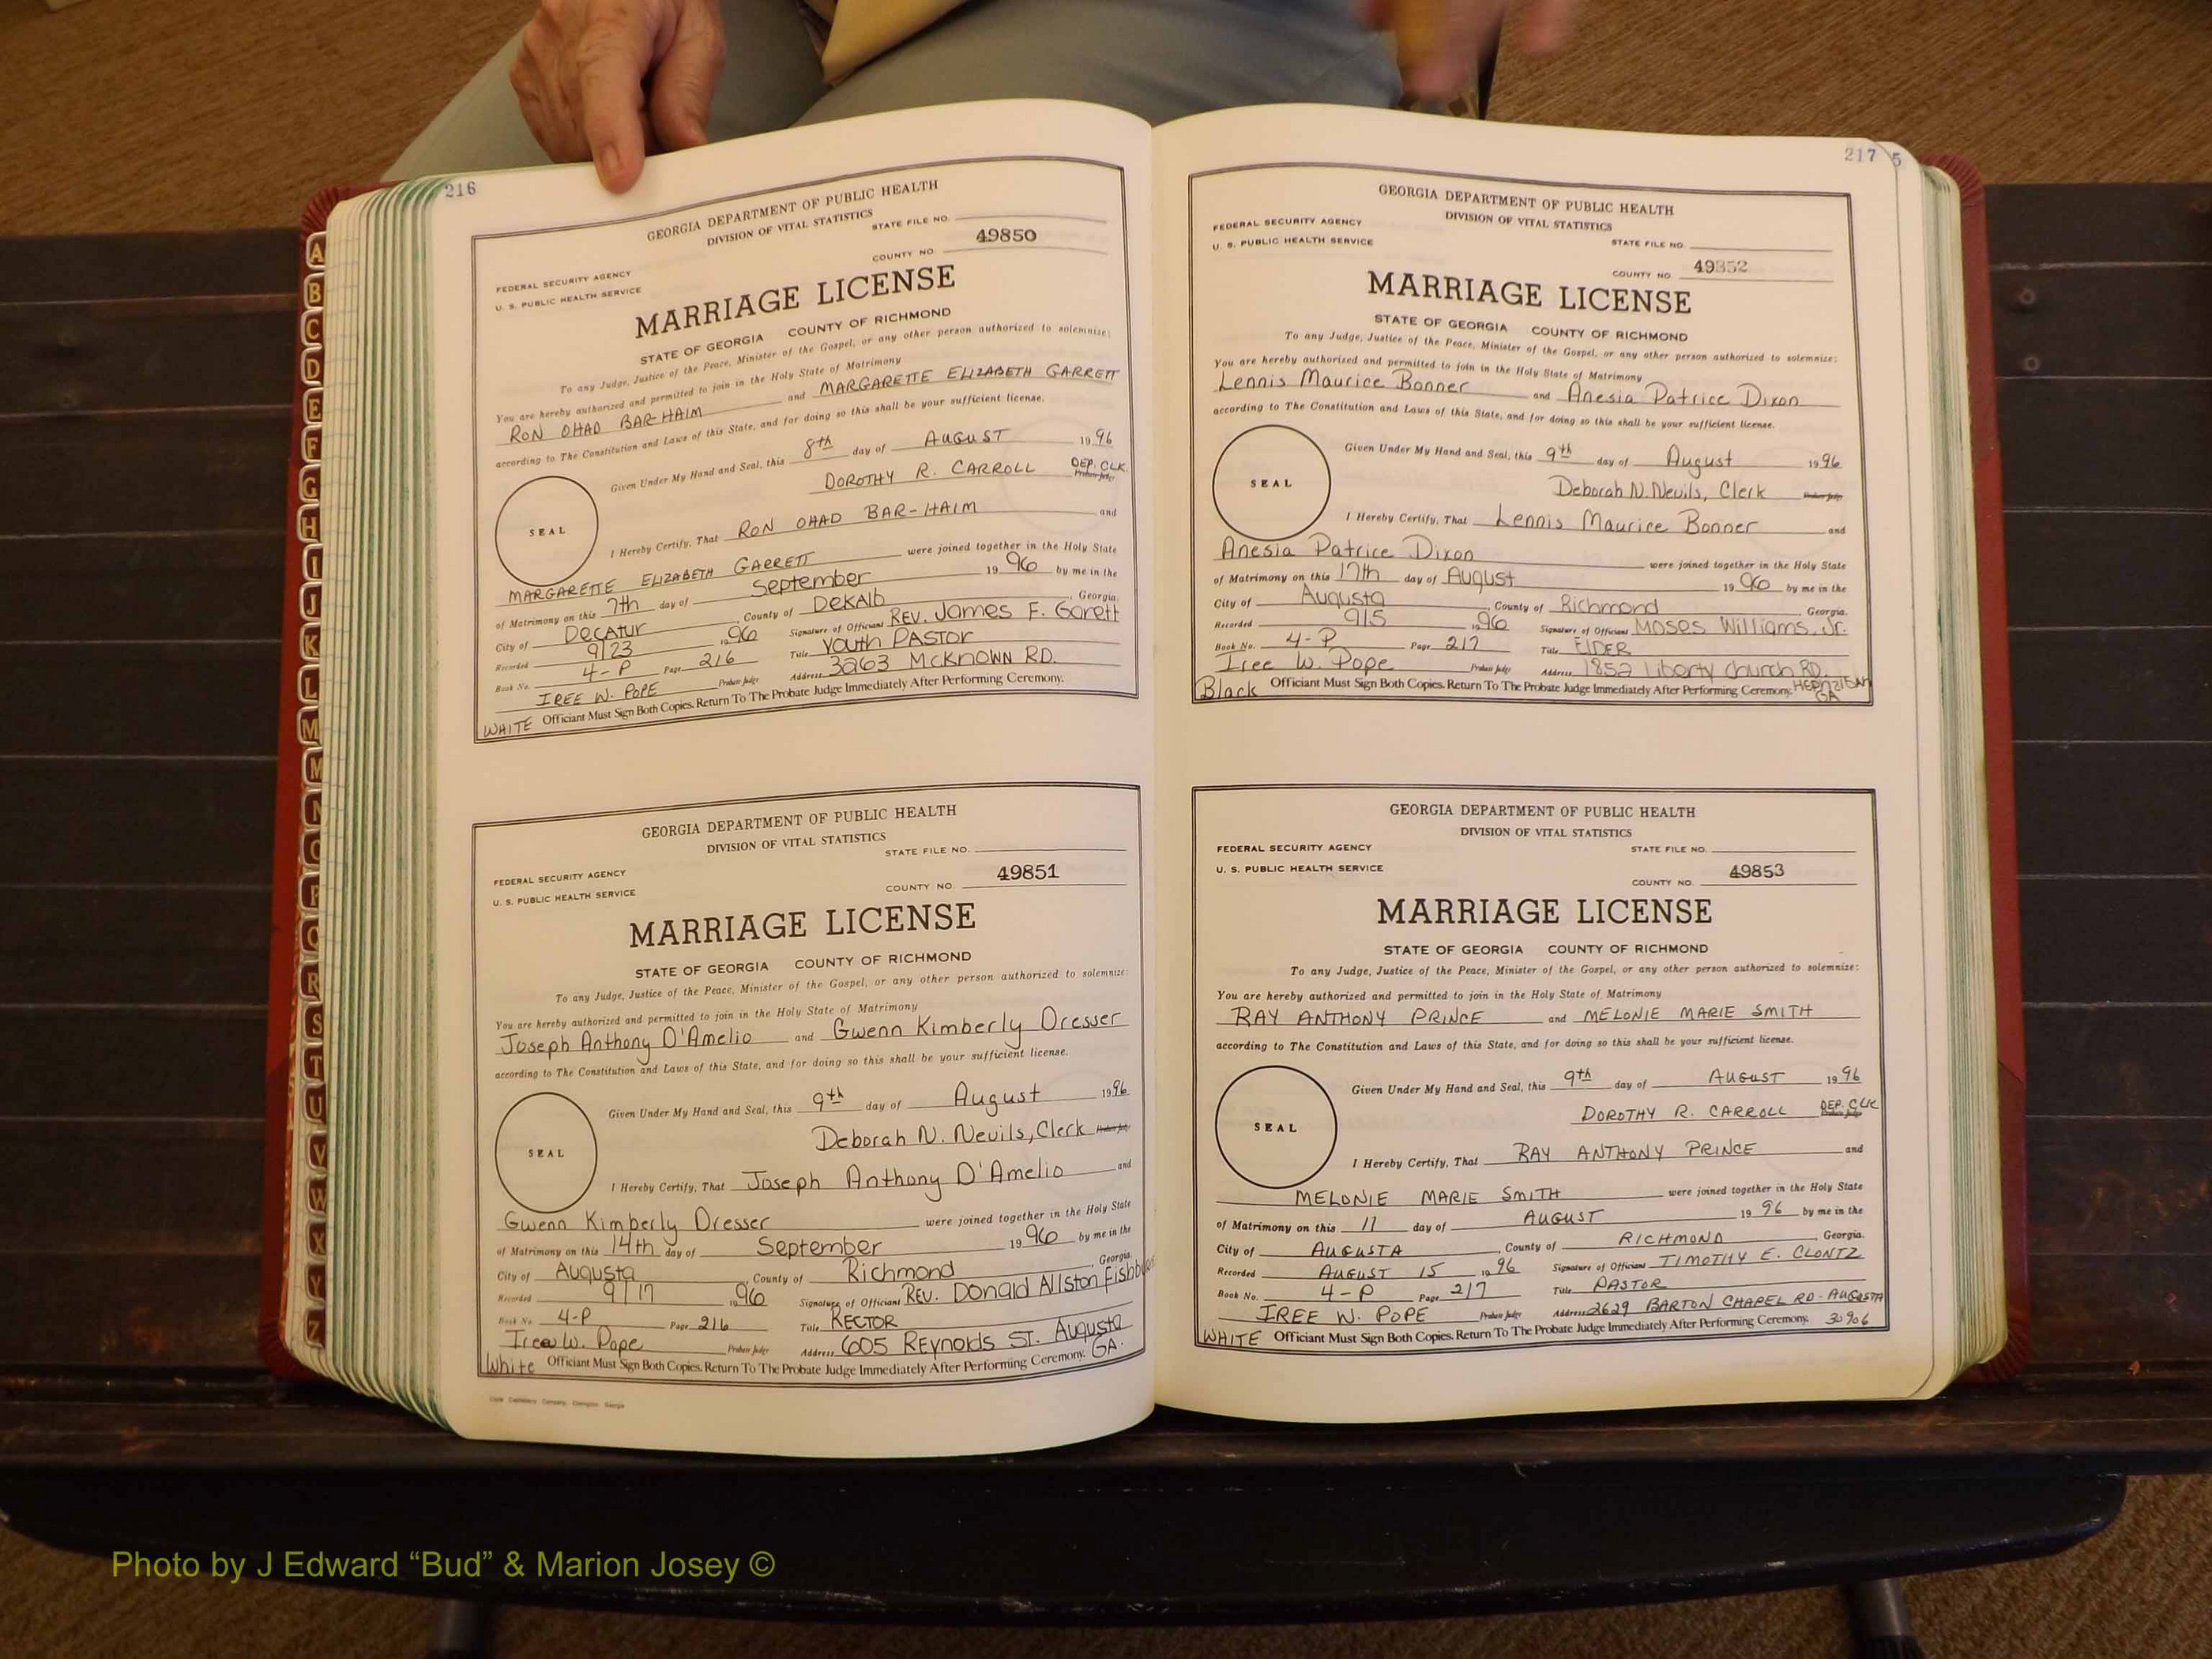 216
GEORGIA DEPARTMENT OF PUBLIC HEALTH
DIVISION OF VITAL STATISTICS
STATE FILE NO.
49850
COUNTY NO
FEDERAL SECURITY AGENCY
U. S. PUBLIC HEALTH SERVICE
MARRIAGE LICENSE
STATE OF GEORGIA COUNTY OF RICHMOND
To any Judge, Justice of the Peace, Minister of the Gospel, or any other person authorized to solemnize:
You are hereby authorized and permitted to join in the Holy State of Matrimony
RON OHAD BAR-HAIM and MARGARETTE ELIZABETH GARRETT
according to The Constitution and Laws of this State, and for doing so this shall be your sufficient license.
Given Under My Hand and Seal, this 8th day of AUGUST 1996
DOROTHY R. CARROLL DEP. CLK.
SEAL
I Hereby Certify, That RON OHAD BAR-HAIM and
MARGARETTE ELIZABETH GARRETT were joined together in the Holy State
of Matrimony on this 7th day of September 1996 by me in the
City of Decatur, County of DeKalb, Georgia.
Recorded 9/23 1996 Signature of Official REV. James F. Garett
Book No. 4-P Page 216 Title Youth PASTOR
IREE W. POPE Probate Judge Address 3263 McKNOWN RD.
WHITE Officiant Must Sign Both Copies. Return To The Probate Judge Immediately After Performing Ceremony.
GEORGIA DEPARTMENT OF PUBLIC HEALTH
DIVISION OF VITAL STATISTICS
STATE FILE NO.
FEDERAL SECURITY AGENCY
49851
COUNTY NO
U. S. PUBLIC HEALTH SERVICE
MARRIAGE LICENSE
STATE OF GEORGIA COUNTY OF RICHMOND
To any Judge, Justice of the Peace, Minister of the Gospel, or any other person authorized to solemnize:
You are hereby authorized and permitted to join in the Holy State of Matrimony
Joseph Anthony D'Amelio and Gwenn Kimberly Dresser
according to The Constitution and Laws of this State, and for doing so this shall be your sufficient license.
Given Under My Hand and Seal, this 9th day of August 1996
Deborah N. Nevils, Clerk
SEAL
I Hereby Certify, That Joseph Anthony D'Amelio and
Gwenn Kimberly Dresser were joined together in the Holy State
of Matrimony on this 14th day of September 1996 by me in the
City of Augusta, County of Richmond, Georgia.
Recorded 9/17 1996 Signature of Official REV. Donald Allston
Book No. 4-P Page 216 Title RECTOR
Iree W. Pope Probate Judge Address 605 Reynolds ST. Augusta
White Officiant Must Sign Both Copies. Return To The Probate Judge Immediately After Performing Ceremony. GA.
217 5
GEORGIA DEPARTMENT OF PUBLIC HEALTH
DIVISION OF VITAL STATISTICS
FEDERAL SECURITY AGENCY
U. S. PUBLIC HEALTH SERVICE
STATE FILE NO.
COUNTY NO. 49852
MARRIAGE LICENSE
STATE OF GEORGIA COUNTY OF RICHMOND
To any Judge, Justice of the Peace, Minister of the Gospel, or any other person authorized to solemnize:
You are hereby authorized and permitted to join in the Holy State of Matrimony
Lennis Maurice Bonner and Anesia Patrice Dixon
according to The Constitution and Laws of this State, and for doing so this shall be your sufficient license.
Given Under My Hand and Seal, this 9th day of August 1996
Deborah N. Nevils, Clerk
SEAL
I Hereby Certify, That Lennis Maurice Bonner and
Anesia Patrice Dixon were joined together in the Holy State
of Matrimony on this 17th day of August 1996 by me in the
City of Augusta, County of Richmond, Georgia.
Recorded 9/5 1996 Signature of Official Moses Williams, Jr.
Book No. 4-P Page 217 Title ELDER
Iree W. Pope Probate Judge Address 1852 Liberty Church RD.
Black Officiant Must Sign Both Copies. Return To The Probate Judge Immediately After Performing Ceremony. HEPHZIBAH
GA
GEORGIA DEPARTMENT OF PUBLIC HEALTH
DIVISION OF VITAL STATISTICS
FEDERAL SECURITY AGENCY
STATE FILE NO.
U. S. PUBLIC HEALTH SERVICE
COUNTY NO. 49853
MARRIAGE LICENSE
STATE OF GEORGIA COUNTY OF RICHMOND
To any Judge, Justice of the Peace, Minister of the Gospel, or any other person authorized to solemnize:
You are hereby authorized and permitted to join in the Holy State of Matrimony
RAY ANTHONY PRINCE and MELONIE MARIE SMITH
according to The Constitution and Laws of this State, and for doing so this shall be your sufficient license.
Given Under My Hand and Seal, this 9th day of AUGUST 1996
DOROTHY R. CARROLL DEP. CLK
SEAL
I Hereby Certify, That RAY ANTHONY PRINCE and
MELONIE MARIE SMITH were joined together in the Holy State
of Matrimony on this 11 day of AUGUST 1996 by me in the
City of AUGUSTA, County of RICHMOND, Georgia.
Recorded AUGUST 15 1996 Signature of Official TIMOTHY E. CLONTZ
Book No. 4-P Page 217 Title PASTOR
IREE W. POPE Probate Judge Address 2629 BARTON CHAPEL RD - AUGUSTA
WHITE Officiant Must Sign Both Copies. Return To The Probate Judge Immediately After Performing Ceremony. 30906
A
B
C
D
E
F
G
H
I
J
K
L
M
N
O
P
Q
R
S
T
U
V
W
X
Y
Z
Photo by J Edward “Bud” & Marion Josey ©